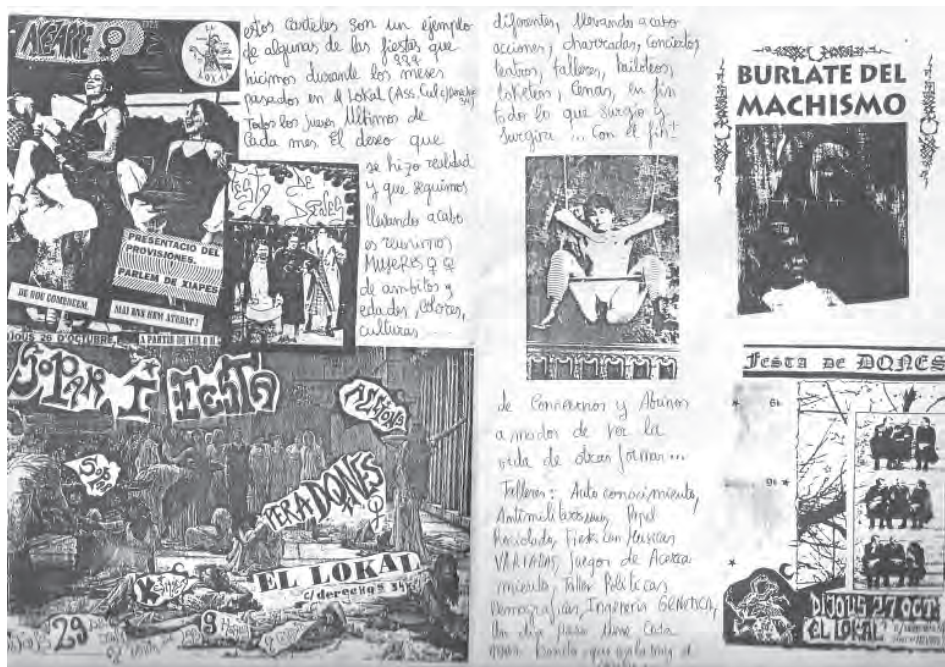 LA
LOKAL
estos carteles son un ejemplo
de algunas de las fiestas que
hicimos durante los meses
pasados en el Lokal (Ass. Cul c/
Todos los jueves Últimos de
Cada mes El deseo que
se hizo realidad
y que seguimos
llevando acabo
es reunirnos
MUJERES ♀ ♀
de ambitos y
edades, colores,
culturas
FESTA DE DONES
PRESENTACIÓ DEL
PROVISIONES.
PARLEM DE XIAPES
DE NOU COMENCEM.
MAI ENS HEM ATURAT!
DIJOUS 26 D'OCTUBRE, A PARTIR DE LES
SOPAR I FESTA
SOPAR
PER A DONES
EL LOKAL
c/derechos 34
29
9
diferentes, llevando acabo
acciones, charradas, conciertos
teatros, talleres, bailoteos,
Cenas, en fin
todo lo que surgio y
surgira ... Con el fin
de Conocernos y Abrirnos
a modos de ver la
vida de otras formas...
Talleres: Auto conocimiento,
Papel
Reciclado,
VARIADAS, Juegos de Acerca
miento, Taller Políticas
Demograficas, Ingeneria GENETICA,
Cada
BURLATE DEL
MACHISMO
FESTA DE DONES
DIJOUS 27 OCT
EL LOKAL